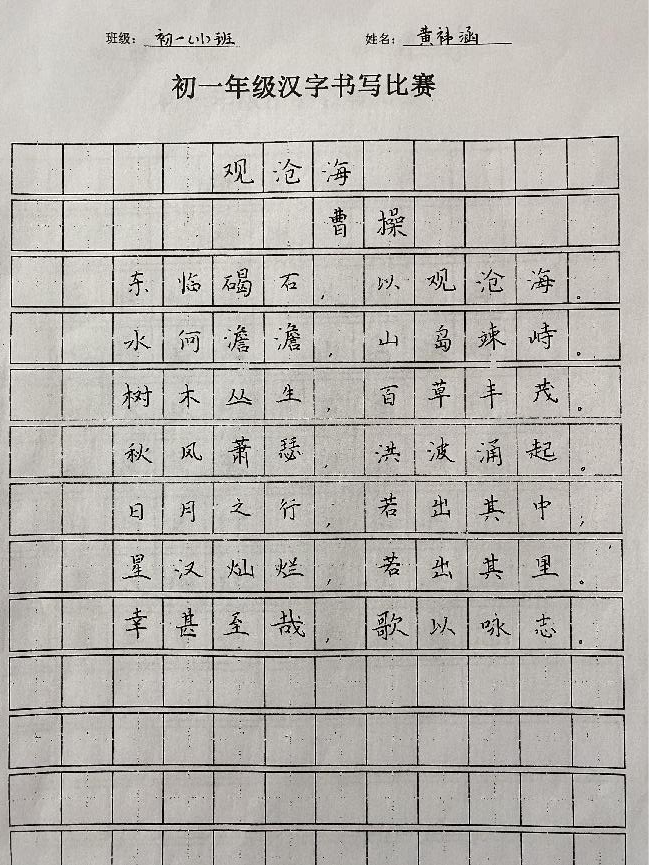 班级：初一（1）班 姓名：黄祎涵
初一年级汉字书写比赛
观沧海
曹操
东临碣石，以观沧海。
水何澹澹，山岛竦峙。
树木丛生，百草丰茂。
秋风萧瑟，洪波涌起。
日月之行，若出其中；
星汉灿烂，若出其里。
幸甚至哉，歌以咏志。